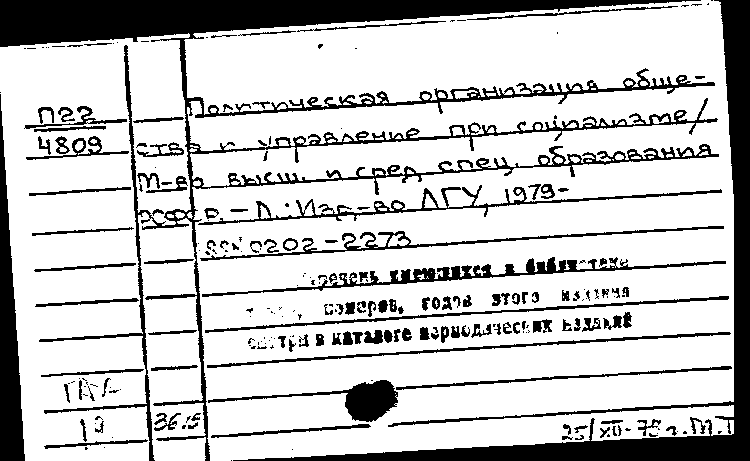 П22
4809
Политическая организация обще-
ства и управление при социализме/
М-во высш. и сред. спец. образования
РСФСР. - Л.: Изд-во ЛГУ, 1979-
ISSN 0202-2273
Перечень имеющихся в библиотеке
номеров, годов этого издания
смотри в каталоге периодических изданий
19
36.15
25/XII-79 г. М.Т